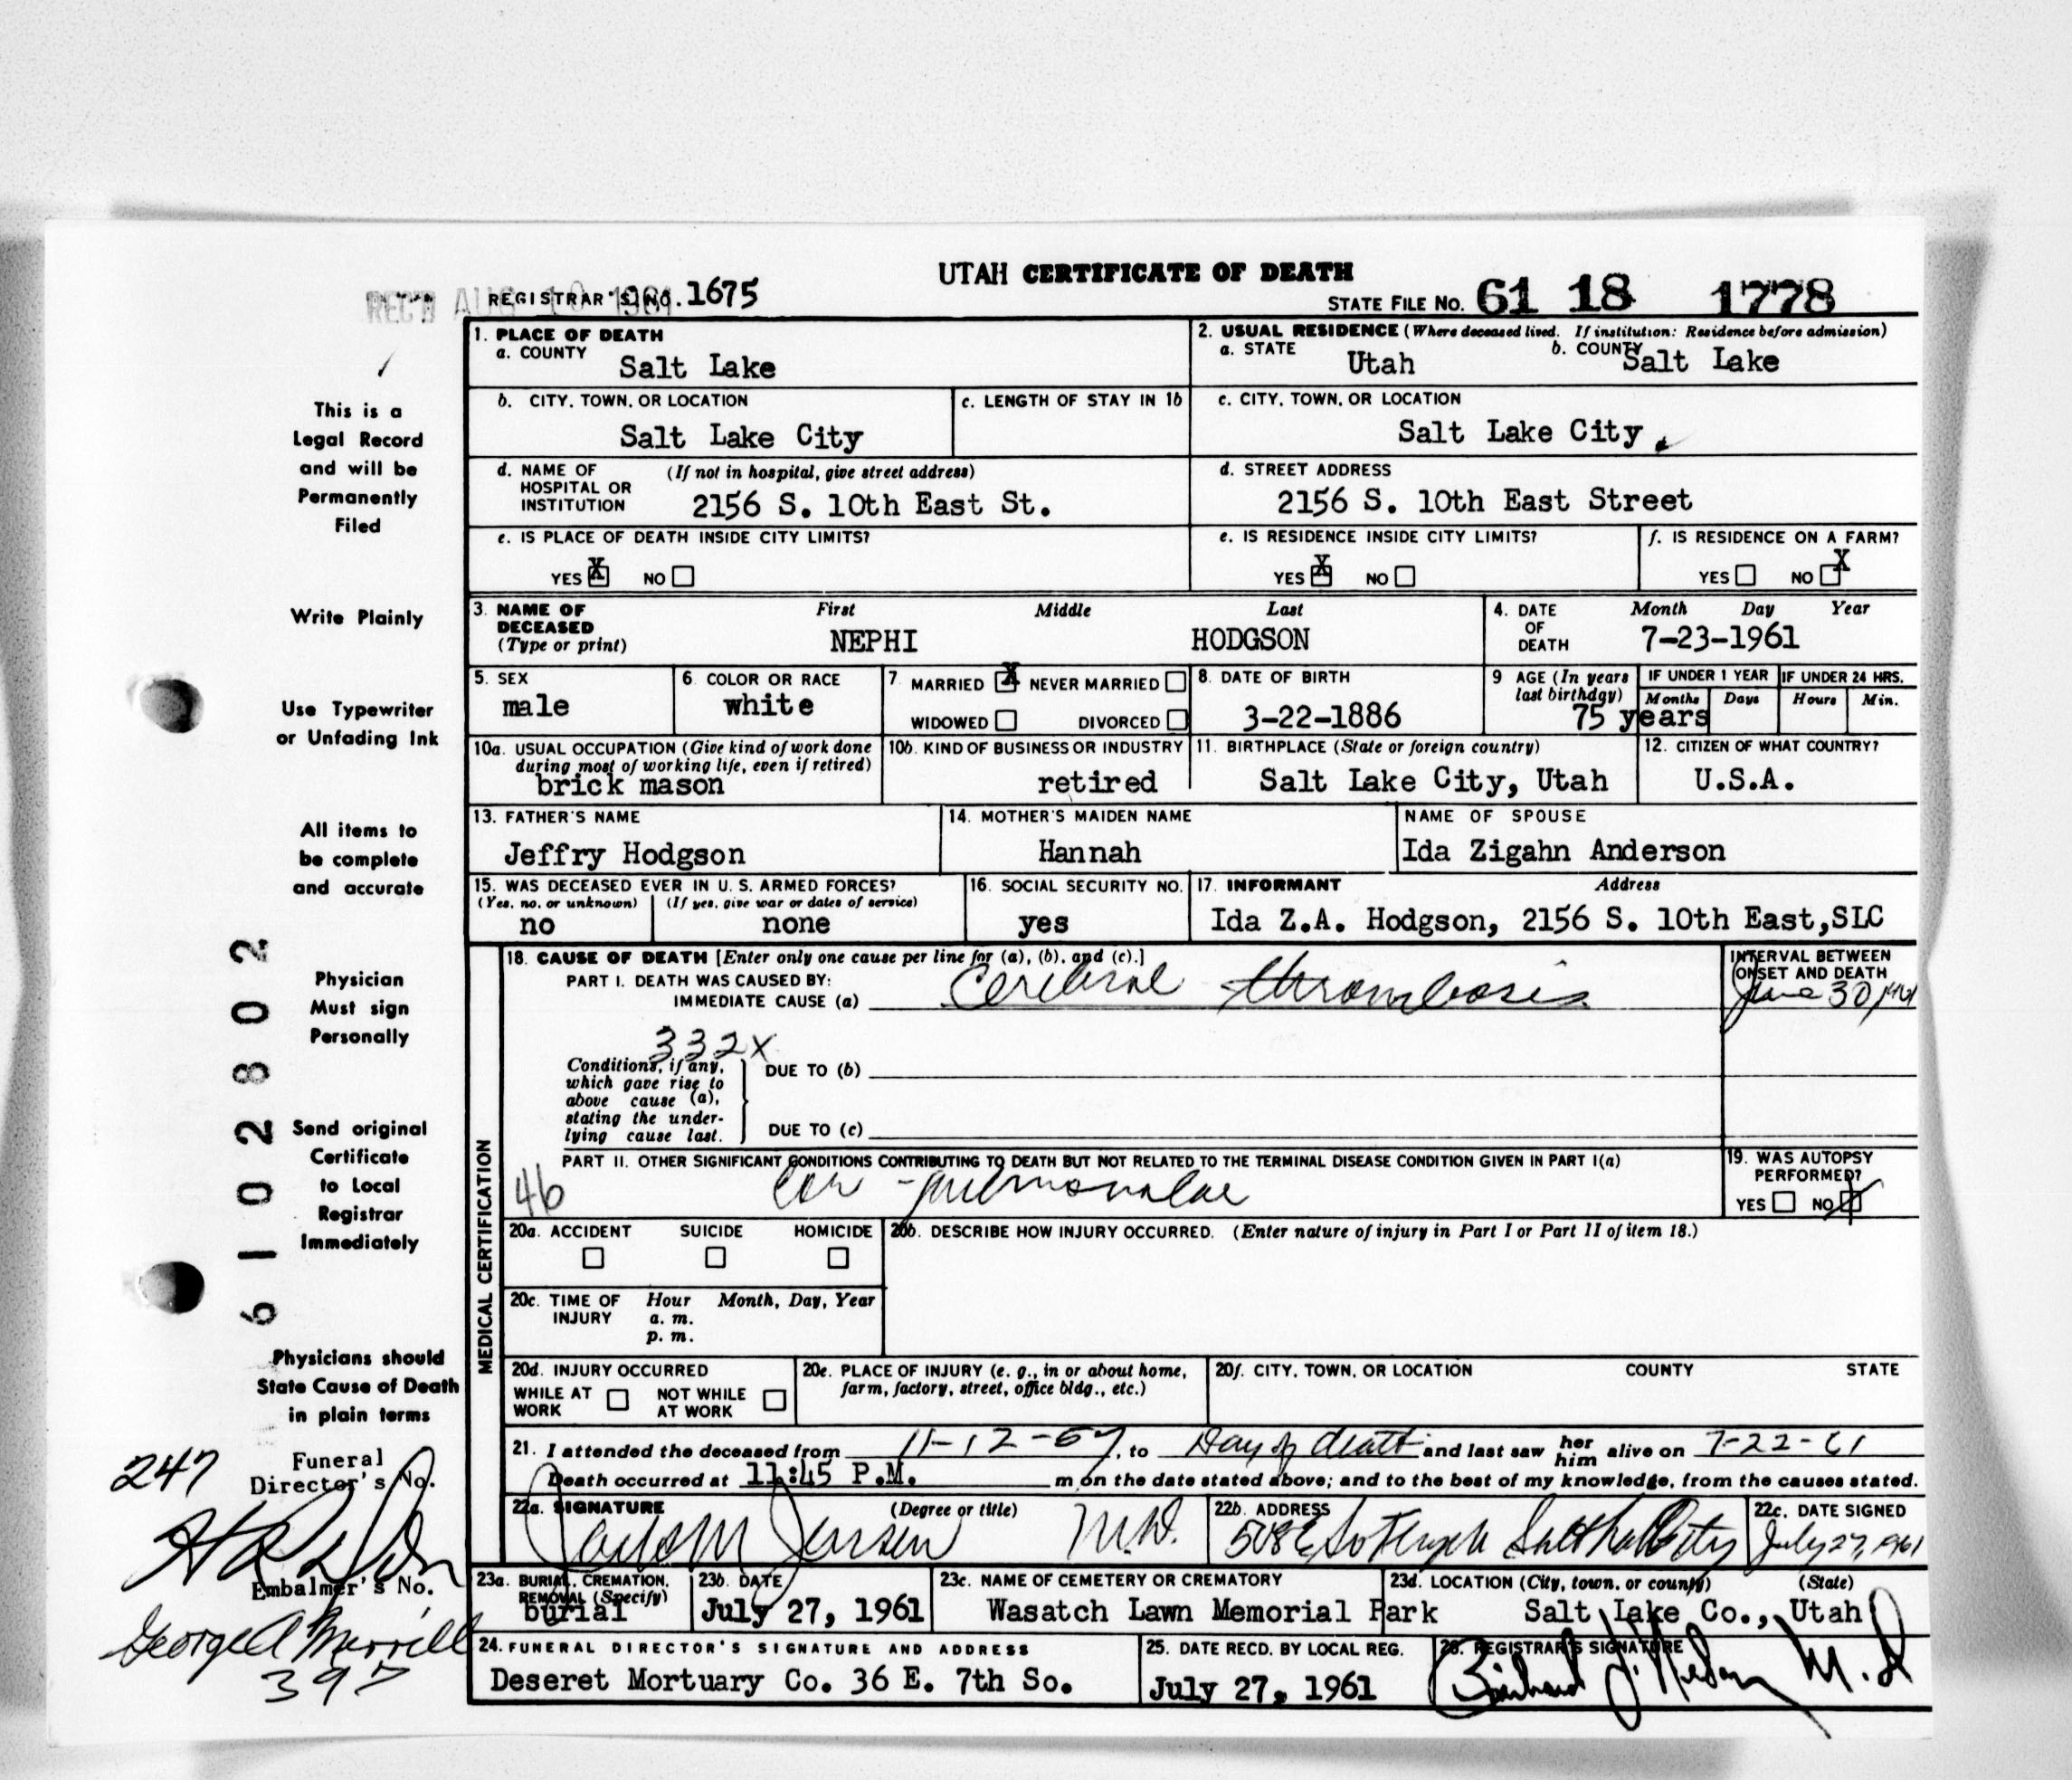 UTAH CERTIFICATE OF DEATH
REC'D AUG 10 1961 REGISTRAR'S NO. 1675
STATE FILE NO. 61 18 1778
1. PLACE OF DEATH
a. COUNTY Salt Lake
2. USUAL RESIDENCE (Where deceased lived. If institution: Residence before admission)
a. STATE Utah b. COUNTY Salt Lake
b. CITY, TOWN, OR LOCATION Salt Lake City
c. LENGTH OF STAY IN 1b
c. CITY, TOWN, OR LOCATION Salt Lake City
d. NAME OF HOSPITAL OR INSTITUTION (If not in hospital, give street address) 2156 S. 10th East St.
d. STREET ADDRESS 2156 S. 10th East Street
e. IS PLACE OF DEATH INSIDE CITY LIMITS?
YES X NO
e. IS RESIDENCE INSIDE CITY LIMITS?
YES X NO
f. IS RESIDENCE ON A FARM?
YES NO X
3. NAME OF DECEASED (Type or print) First Middle Last
NEPHI HODGSON
4. DATE OF DEATH Month Day Year
7-23-1961
5. SEX male
6. COLOR OR RACE white
7. MARRIED X NEVER MARRIED
WIDOWED DIVORCED
8. DATE OF BIRTH 3-22-1886
9 AGE (In years last birthday) 75 years
IF UNDER 1 YEAR Months Days
IF UNDER 24 HRS. Hours Min.
10a. USUAL OCCUPATION (Give kind of work done during most of working life, even if retired)
brick mason
10b. KIND OF BUSINESS OR INDUSTRY
retired
11. BIRTHPLACE (State or foreign country)
Salt Lake City, Utah
12. CITIZEN OF WHAT COUNTRY?
U.S.A.
13. FATHER'S NAME
Jeffry Hodgson
14. MOTHER'S MAIDEN NAME
Hannah
NAME OF SPOUSE
Ida Zigahn Anderson
15. WAS DECEASED EVER IN U. S. ARMED FORCES?
(Yes, no, or unknown) (If yes, give war or dates of service)
no none
16. SOCIAL SECURITY NO.
yes
17. INFORMANT Address
Ida Z.A. Hodgson, 2156 S. 10th East,SLC
MEDICAL CERTIFICATION
18. CAUSE OF DEATH [Enter only one cause per line for (a), (b), and (c).]
PART I. DEATH WAS CAUSED BY:
IMMEDIATE CAUSE (a) Cerebral thrombosis
INTERVAL BETWEEN ONSET AND DEATH
June 30, 1961
332X
Conditions, if any, which gave rise to above cause (a), stating the underlying cause last.
DUE TO (b)
DUE TO (c)
PART II. OTHER SIGNIFICANT CONDITIONS CONTRIBUTING TO DEATH BUT NOT RELATED TO THE TERMINAL DISEASE CONDITION GIVEN IN PART I(a)
46 Cor - pulmonalae
19. WAS AUTOPSY PERFORMED?
YES NO X
20a. ACCIDENT SUICIDE HOMICIDE
20b. DESCRIBE HOW INJURY OCCURRED. (Enter nature of injury in Part I or Part II of item 18.)
20c. TIME OF INJURY Hour Month, Day, Year
a. m.
p. m.
20d. INJURY OCCURRED
WHILE AT WORK NOT WHILE AT WORK
20e. PLACE OF INJURY (e. g., in or about home, farm, factory, street, office bldg., etc.)
20f. CITY, TOWN, OR LOCATION COUNTY STATE
21. I attended the deceased from 11-12-57, to Day of death and last saw her him alive on 7-22-61
Death occurred at 11:45 P.M. m on the date stated above; and to the best of my knowledge, from the causes stated.
22a. SIGNATURE (Degree or title)
Jensen M.D.
22b. ADDRESS
508 E So Temple Salt Lake City
22c. DATE SIGNED
July 27, 1961
23a. BURIAL, CREMATION, REMOVAL (Specify)
burial
23b. DATE
July 27, 1961
23c. NAME OF CEMETERY OR CREMATORY
Wasatch Lawn Memorial Park
23d. LOCATION (City, town, or county) (State)
Salt Lake Co., Utah
24. FUNERAL DIRECTOR'S SIGNATURE AND ADDRESS
Deseret Mortuary Co. 36 E. 7th So.
25. DATE RECD. BY LOCAL REG.
July 27, 1961
26. REGISTRAR'S SIGNATURE
M.D.
This is a
Legal Record
and will be
Permanently
Filed
Write Plainly
Use Typewriter
or Unfading Ink
All items to
be complete
and accurate
Physician
Must sign
Personally
Send original
Certificate
to Local
Registrar
Immediately
Physicians should
State Cause of Death
in plain terms
6102802
247
Funeral
Director's No.
Embalmer's No.
George A Merrill
397